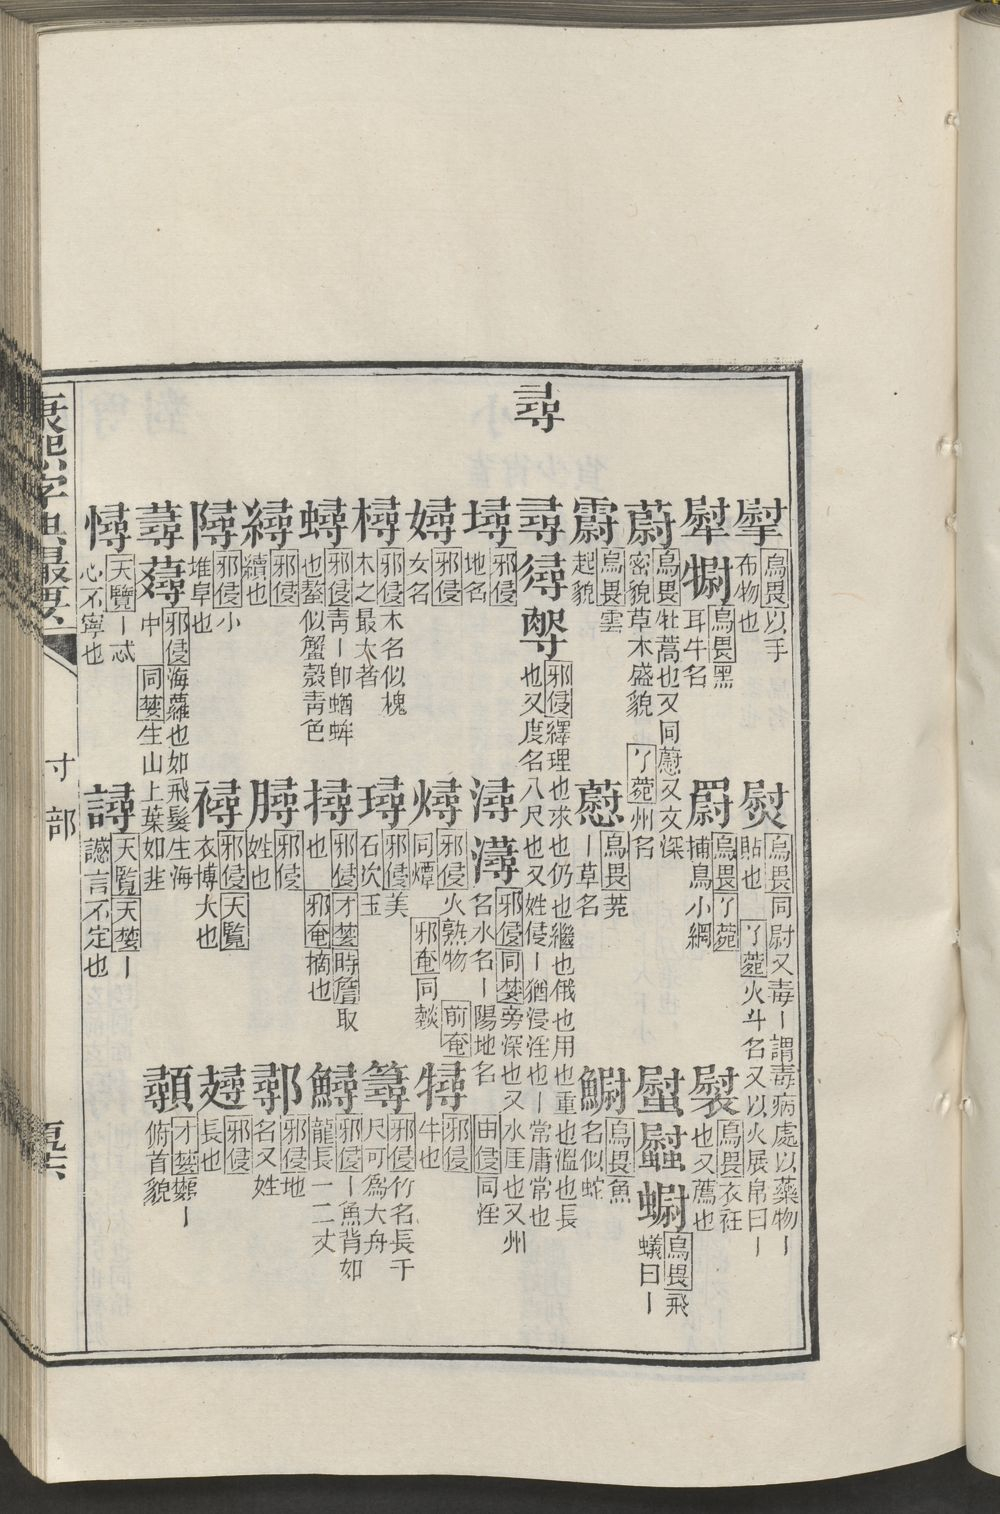 尋
㙈布物也烏畏以手
熨烏畏同尉又毒丨謂毒病處以藥物丨貼也丁菀火斗名又以火展帛曰丨
犚𤛎烏畏黑耳牛名
罻烏畏丁菀捕鳥小網
褽烏畏衣衽也又薦也
蔚烏畏牡蒿也又同䓿又文深密貌草木盛貌丁菀州名
螱烏畏飛蟻曰丨
霨烏畏雲起貌
䓿烏畏菀丨草名
䲁烏畏魚名似蛇
尋㝷邪侵繹理也求也仍也繼也俄也用也重也溫也長也又度名八尺也又姓侵丨猶浸淫也丨常庸常也
埻邪侵地名
潯邪侵同婪旁深也又水厓也又州名水名丨陽地名由侵同淫
㜄邪侵女名
燖邪侵火熟物前奄同燂邪奄同燅
㸈邪侵牛也
樳邪侵木名似槐木之最大者
璕邪侵美石次玉
䉊邪侵竹名長千尺可爲大舟
蟳邪侵青丨卽蝤蛑也螯似蟹殼青色
撏邪侵才婪時詹取也邪奄摘也
鱘邪侵丨魚背如龍長一二丈
繟邪侵續也
𦠅邪侵姓也
鄩邪侵地名又姓
隯邪侵小堆阜也
襑邪侵天覽衣博大也
𧽼邪侵長也
蕁邪侵海蘿也如飛髮生海中同婪生山上葉如韭
顐才婪䫲丨俯首貌
憛天覽丨忒心不寧也
譐天覽天婪丨讑言不定也
康熙字典最要
寸部